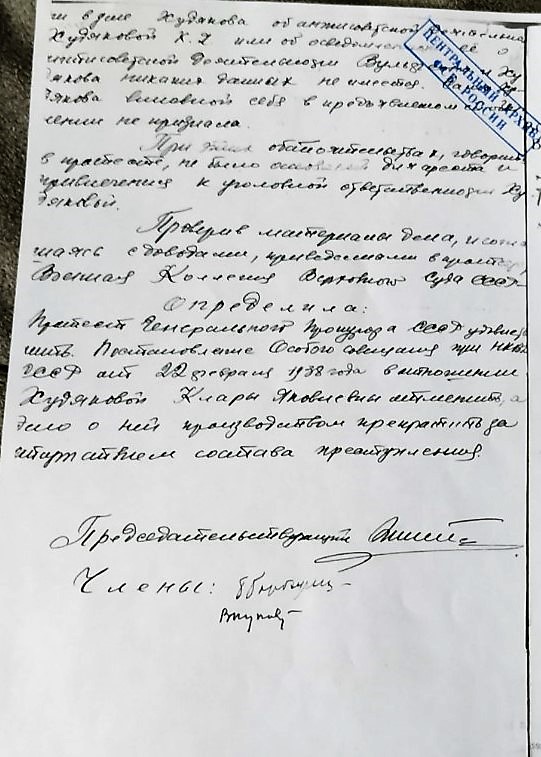 ги в деле Худякова об антисоветской деятельн
Худяковой К.Я. или об осведомленности её о
антисоветской деятельности Ху-
дякова никаких данных не имеется. Сама Ху-
дякова виновной себя в предъявленном
лении не признала.
При этих обстоятельствах, говорит
в протесте, не было оснований для ареста и
привлечения к уголовной ответственности Ху
дяковой.
Проверив материалы дела, и согла
шаясь с доводами, приведенными в протесте,
Военная Коллегия Верховного Суда СССР-
Определила:
Протест Генерального Прокурора СССР удовле
ворить. Постановление Особого совещания при НКВД
СССР от 22 февраля 1938 года в отношении
Худяковой Клары Яковлевны отменить, а
дело о ней производством прекратить за
отсутствием состава преступления.
Председательствующий
Члены:
ЦЕНТРАЛЬНЫЙ АРХИВ
ФСБ РОССИИ